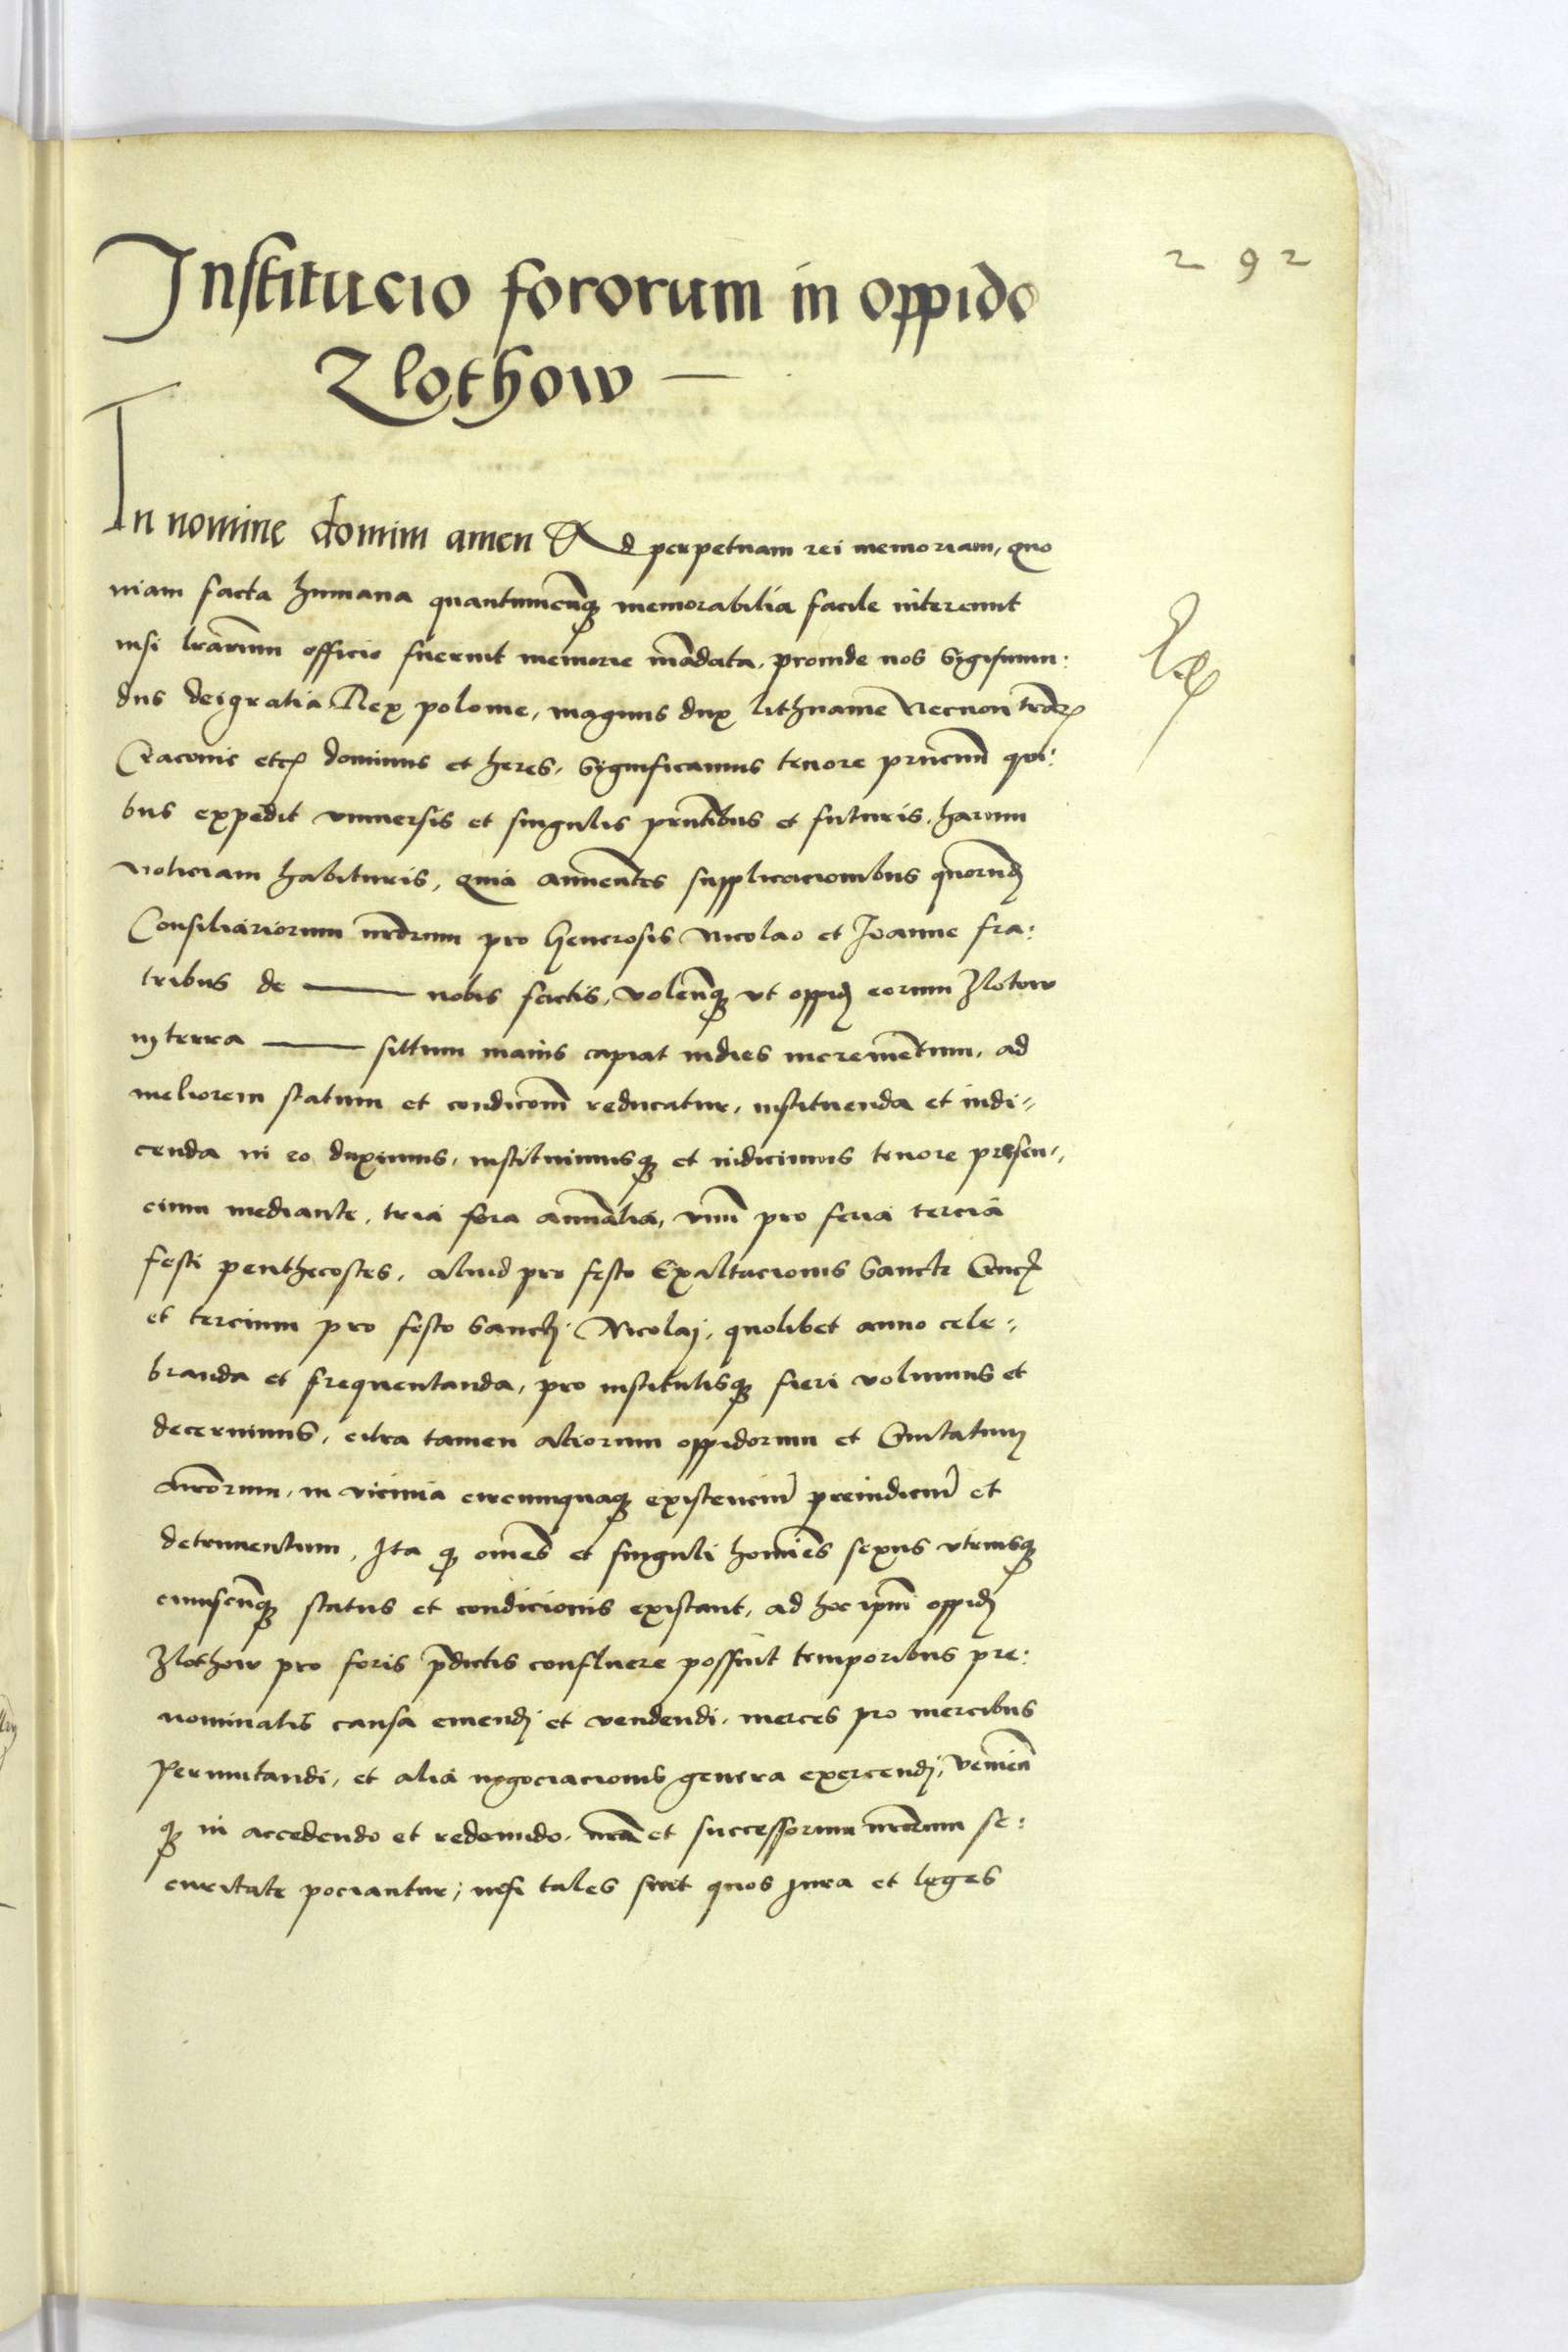 292
Institucio fororum in oppido
Zlothow —
In nomine domini amen Ad perpetuam rei memoriam, quo
niam facta humana quantumcunq memorabilia facile intereunt
nisi lrarum officio fuerint memorie madata, proinde nos Sigismun:
dus deigratia Rex polonie, magnus dux lithuanie Necnon trar
Cracovie etc dominus et heres, Significamus tenore pncium qui:
bus expedit universis et singulis pntibus et futuris, harum
noticiam habituris, quia annuentes supplicacionibus quorund
Consiliariorum nrorum pro Generosis Nicolao et Joanne fra:
tribus de — nobis factis, volenq ut oppid eorum Zlotow
in terra — situm maius capiat indies incrementum, ad
meliorem statum et condicom reducatur, instituenda et indi-
cenda in eo duximus, instituimusq et indicimus tenore presen-
cium mediante, tria fora annalia, unu pro feria tercia
festi penthecostes, aliud pro festo Exaltacionis Sancte Cruc
et tercium pro festo Sancti Nicolaj, quolibet anno cele-
branda et frequentanda, pro institutisq fieri volumus et
decernimus, citra tamen aliorum oppidorum et Civitatum
nrorum, in vicinia circumquaq existenciu preiudiciu et
detrimentum, Ita q omes et singuli homies sexus utriusq
cuiuscunq status et condicionis existant, ad hoc ipm oppid
Zlothow pro foris pdictis confluere possint temporibus pre:
nominatis causa emendi et vendendi, merces pro mercibus
Permutandi, et alia negociacionis genera exercendi, venien
q in accedendo et redeundo, nra et successorum nrorum se:
curitate pociantur, nisi tales sint quos jura et leges